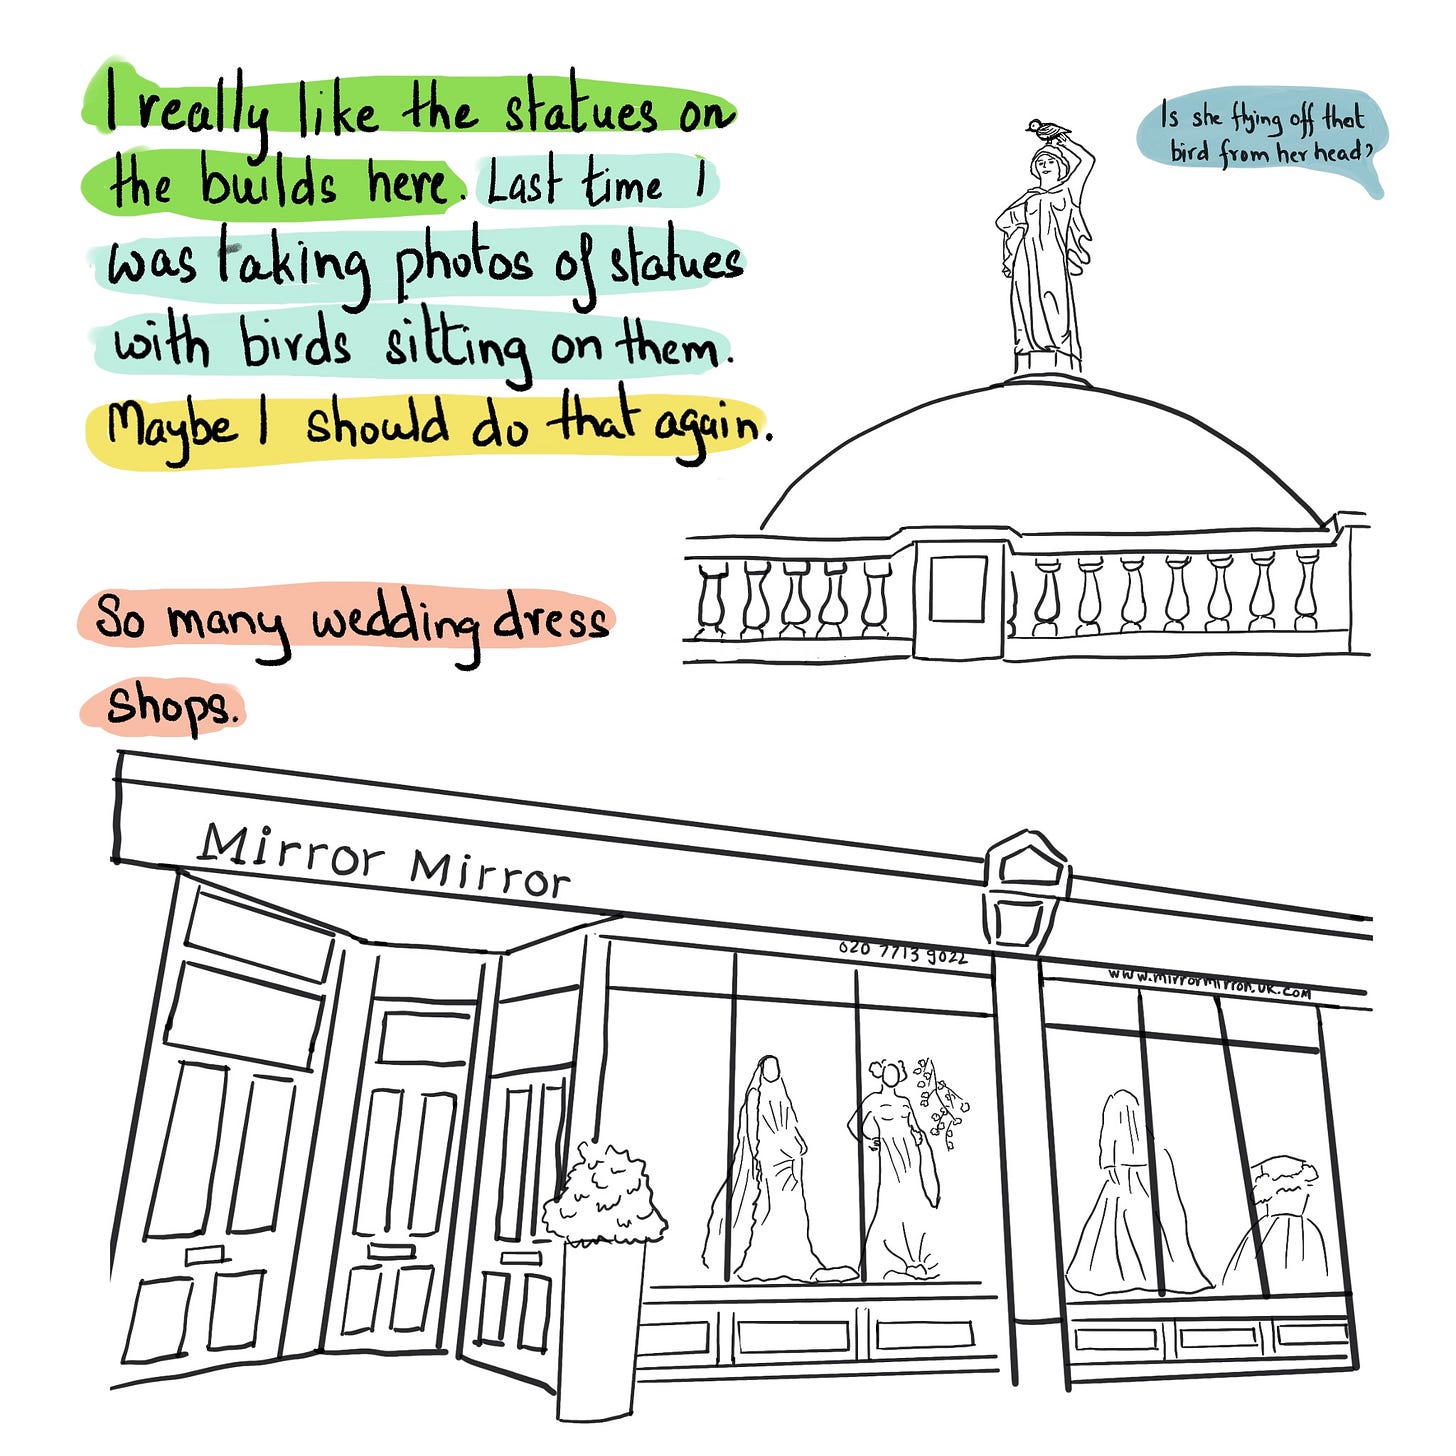 I really like the statues on
the builds here. Last time I
was taking photos of statues
with birds sitting on them.
Maybe I should do that again.
Is she flying off that
bird from her head?
So many wedding dress
shops.
Mirror Mirror
020 7713 9022
www.mirrormirror.uk.com